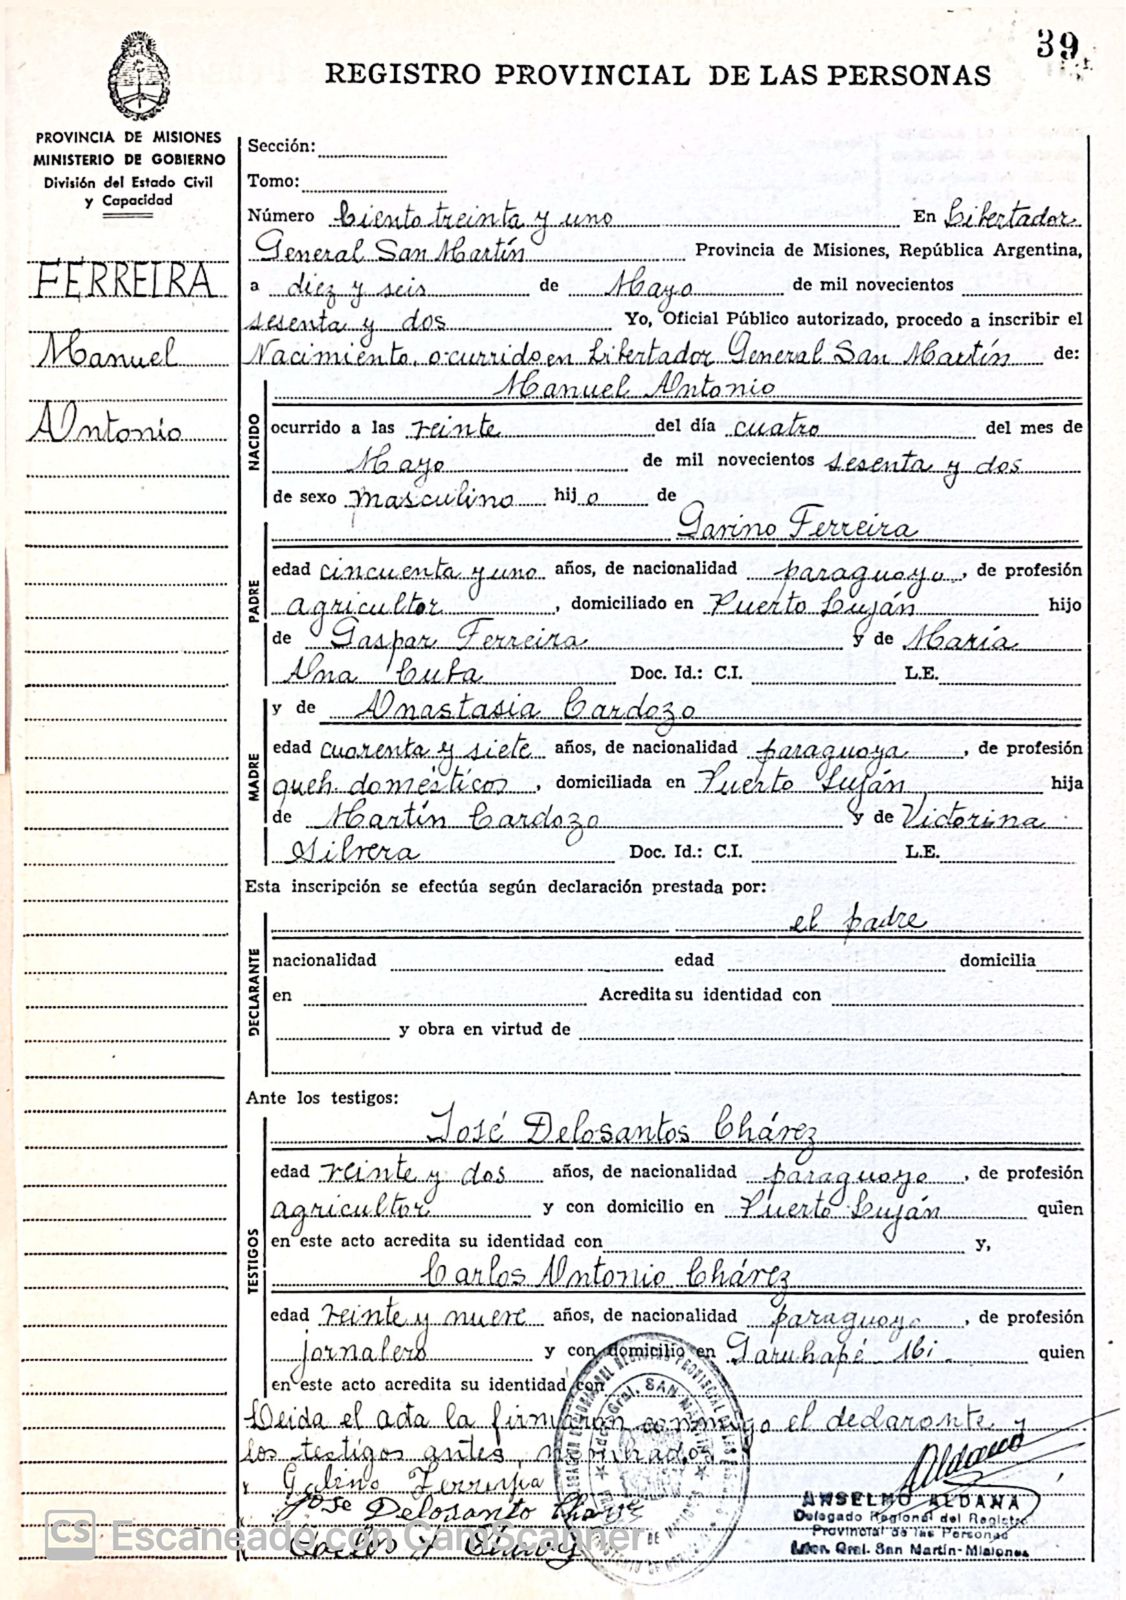 39
REGISTRO PROVINCIAL DE LAS PERSONAS
PROVINCIA DE MISIONES
MINISTERIO DE GOBIERNO
División del Estado Civil
y Capacidad
FERREIRA
Manuel
Antonio
Sección:
Tomo:
Número Ciento treinta y uno En Libertador
General San Martín Provincia de Misiones, República Argentina,
a diez y seis de Mayo de mil novecientos
sesenta y dos Yo, Oficial Público autorizado, procedo a inscribir el
Nacimiento, ocurrido en Libertador General San Martín de:
NACIDO
Manuel Antonio
ocurrido a las veinte del día cuatro del mes de
Mayo de mil novecientos sesenta y dos
de sexo masculino hijo de
Gavino Ferreira
PADRE
edad cincuenta y uno años, de nacionalidad paraguayo, de profesión
agricultor, domiciliado en Puerto Luján hijo
de Gaspar Ferreira y de María
Ana Doc. Id.: C.I. L.E.
MADRE
y de Anastasia Cardozo
edad cuarenta y siete años, de nacionalidad paraguaya, de profesión
queh. domésticos, domiciliada en Puerto Luján hija
de Martín Cardozo y de Victorina
Silvera Doc. Id.: C.I. L.E.
Esta inscripción se efectúa según declaración prestada por:
DECLARANTE
el padre
nacionalidad edad domicilia
en Acredita su identidad con
y obra en virtud de
Ante los testigos:
TESTIGOS
José Delosantos Chávez
edad veinte y dos años, de nacionalidad paraguayo, de profesión
agricultor y con domicilio en Puerto Luján quien
en este acto acredita su identidad con y,
Carlos Antonio Chávez
edad veinte y nueve años, de nacionalidad paraguayo, de profesión
jornalero y con domicilio en Garuhapé Mi. quien
en este acto acredita su identidad con
Leída el acta la firmaron conmigo el declarante y
los testigos antes
Jose Delosanto
ANSELMO ALDANA
Delegado Regional del Registro
Provincial de las Personas
Ldor. Gral. San Martín-Misiones
Gral. SAN MARTIN
CS Escaneado con CamScanner